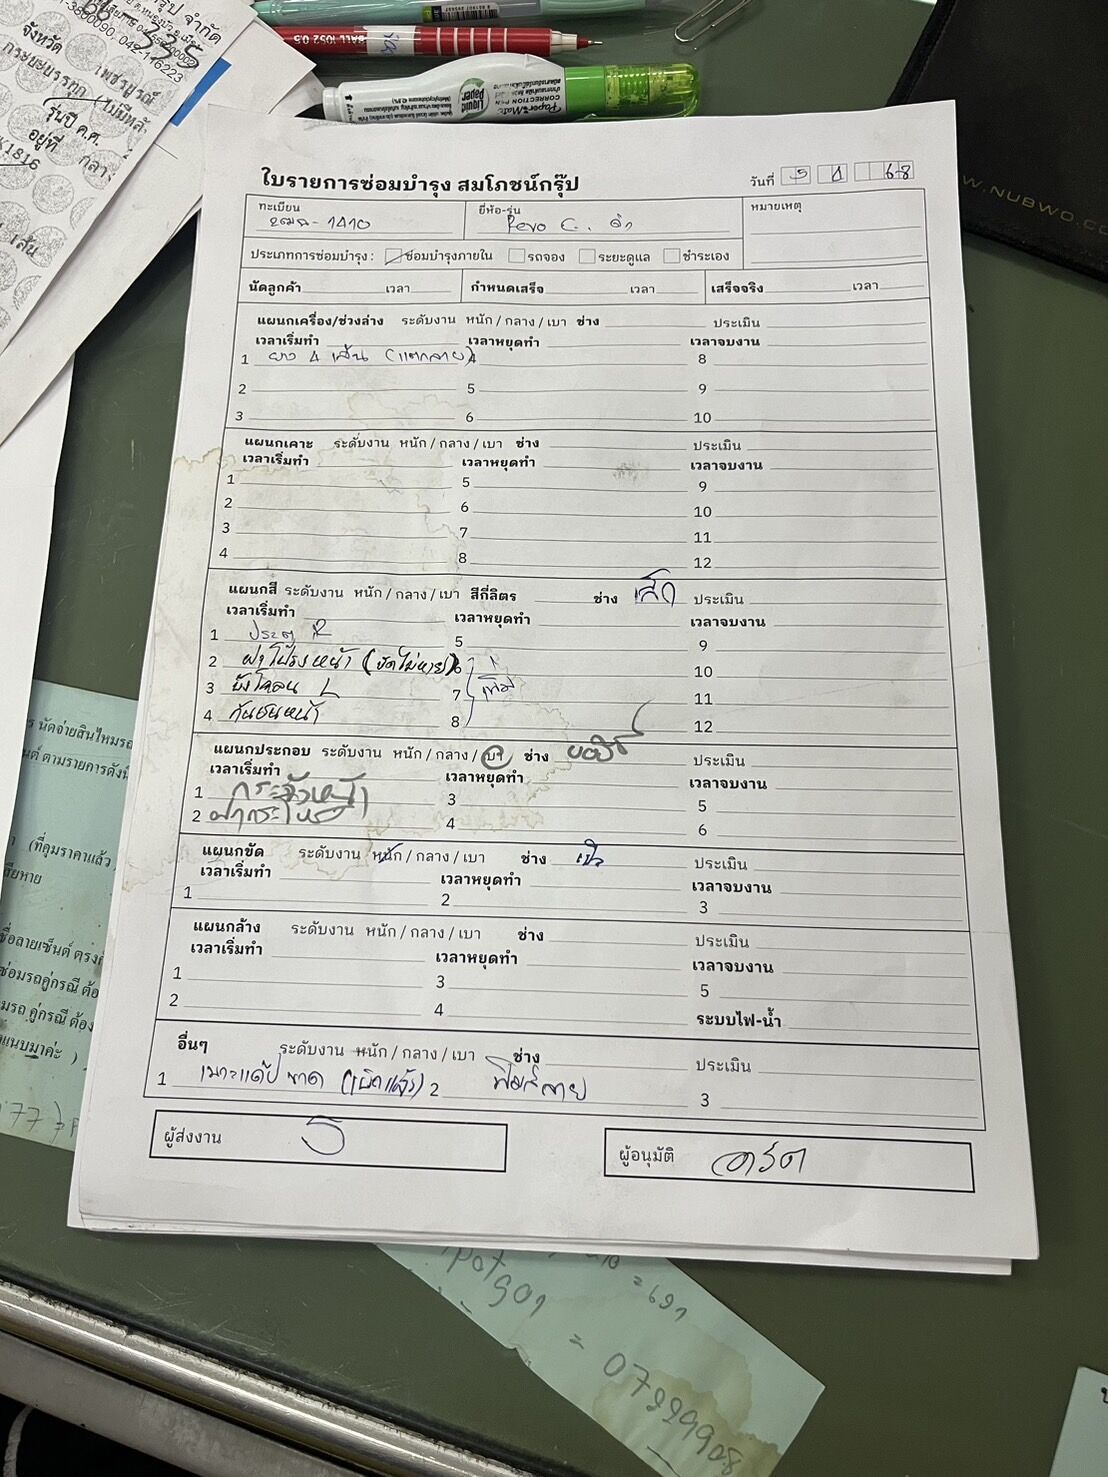 จังหวัด เพชรบูรณ์
กระยะบรรทุก (ไม่มีหลั
รุ่นปี ค.ศ.
อยู่ที่ กลาง
K1816
เส้น
BALL 1052 0.5
Liquid Paper
PaperMate
CORRECTION PEN
W.NUBWO.CO
ใบรายการซ่อมบำรุง สมโภชน์กรุ๊ป
วันที่ 5 4 68
ทะเบียน ยี่ห้อ-รุ่น Revo C. หมายเหตุ
1410
ประเภทการซ่อมบำรุง : ซ่อมบำรุงภายใน รถจอง ระยะดูแล ชำระเอง
นัดลูกค้า เวลา กำหนดเสร็จ เวลา เสร็จจริง เวลา
แผนกเครื่อง/ช่วงล่าง ระดับงาน หนัก / กลาง / เบา ช่าง ประเมิน
เวลาเริ่มทำ เวลาหยุดทำ เวลาจบงาน
1 ยาง 4 เส้น (แตกลาย) 4 8
2 5 9
3 6 10
แผนกเคาะ ระดับงาน หนัก / กลาง / เบา ช่าง ประเมิน
เวลาเริ่มทำ เวลาหยุดทำ เวลาจบงาน
1 5 9
2 6 10
3 7 11
4 8 12
แผนกสี ระดับงาน หนัก / กลาง / เบา สีกี่ลิตร ช่าง เล็ก ประเมิน
เวลาเริ่มทำ เวลาหยุดทำ เวลาจบงาน
1 ประตู R 5 9
2 ฝากระโปรงหน้า (ขัดไม่หาย) 6 10
3 บังโคลน L 7 เพิ่ม 11
4 กันชนหน้า 8 12
แผนกประกอบ ระดับงาน หนัก / กลาง / เบา ช่าง ประเมิน
เวลาเริ่มทำ เวลาหยุดทำ เวลาจบงาน
1 กระจังหน้า 3 5
2 4 6
แผนกขัด ระดับงาน หนัก / กลาง / เบา ช่าง ประเมิน
เวลาเริ่มทำ เวลาหยุดทำ เวลาจบงาน
1 2 3
แผนกล้าง ระดับงาน หนัก / กลาง / เบา ช่าง ประเมิน
เวลาเริ่มทำ เวลาหยุดทำ เวลาจบงาน
1 3 5
2 4 ระบบไฟ-น้ำ
อื่นๆ ระดับงาน หนัก / กลาง / เบา ช่าง ประเมิน
1 เบาะแค๊ป ขาด (เบิกแล้ว) 2 ฟิล์มลาย 3
ผู้ส่งงาน ผู้อนุมัติ
นัดจ่ายสินไหมรถ
ตามรายการดังนี้
(ที่คุมราคาแล้ว
ซ่อมรถคู่กรณี ต้อ
คู่กรณี ต้อง
แนบมาค่ะ )